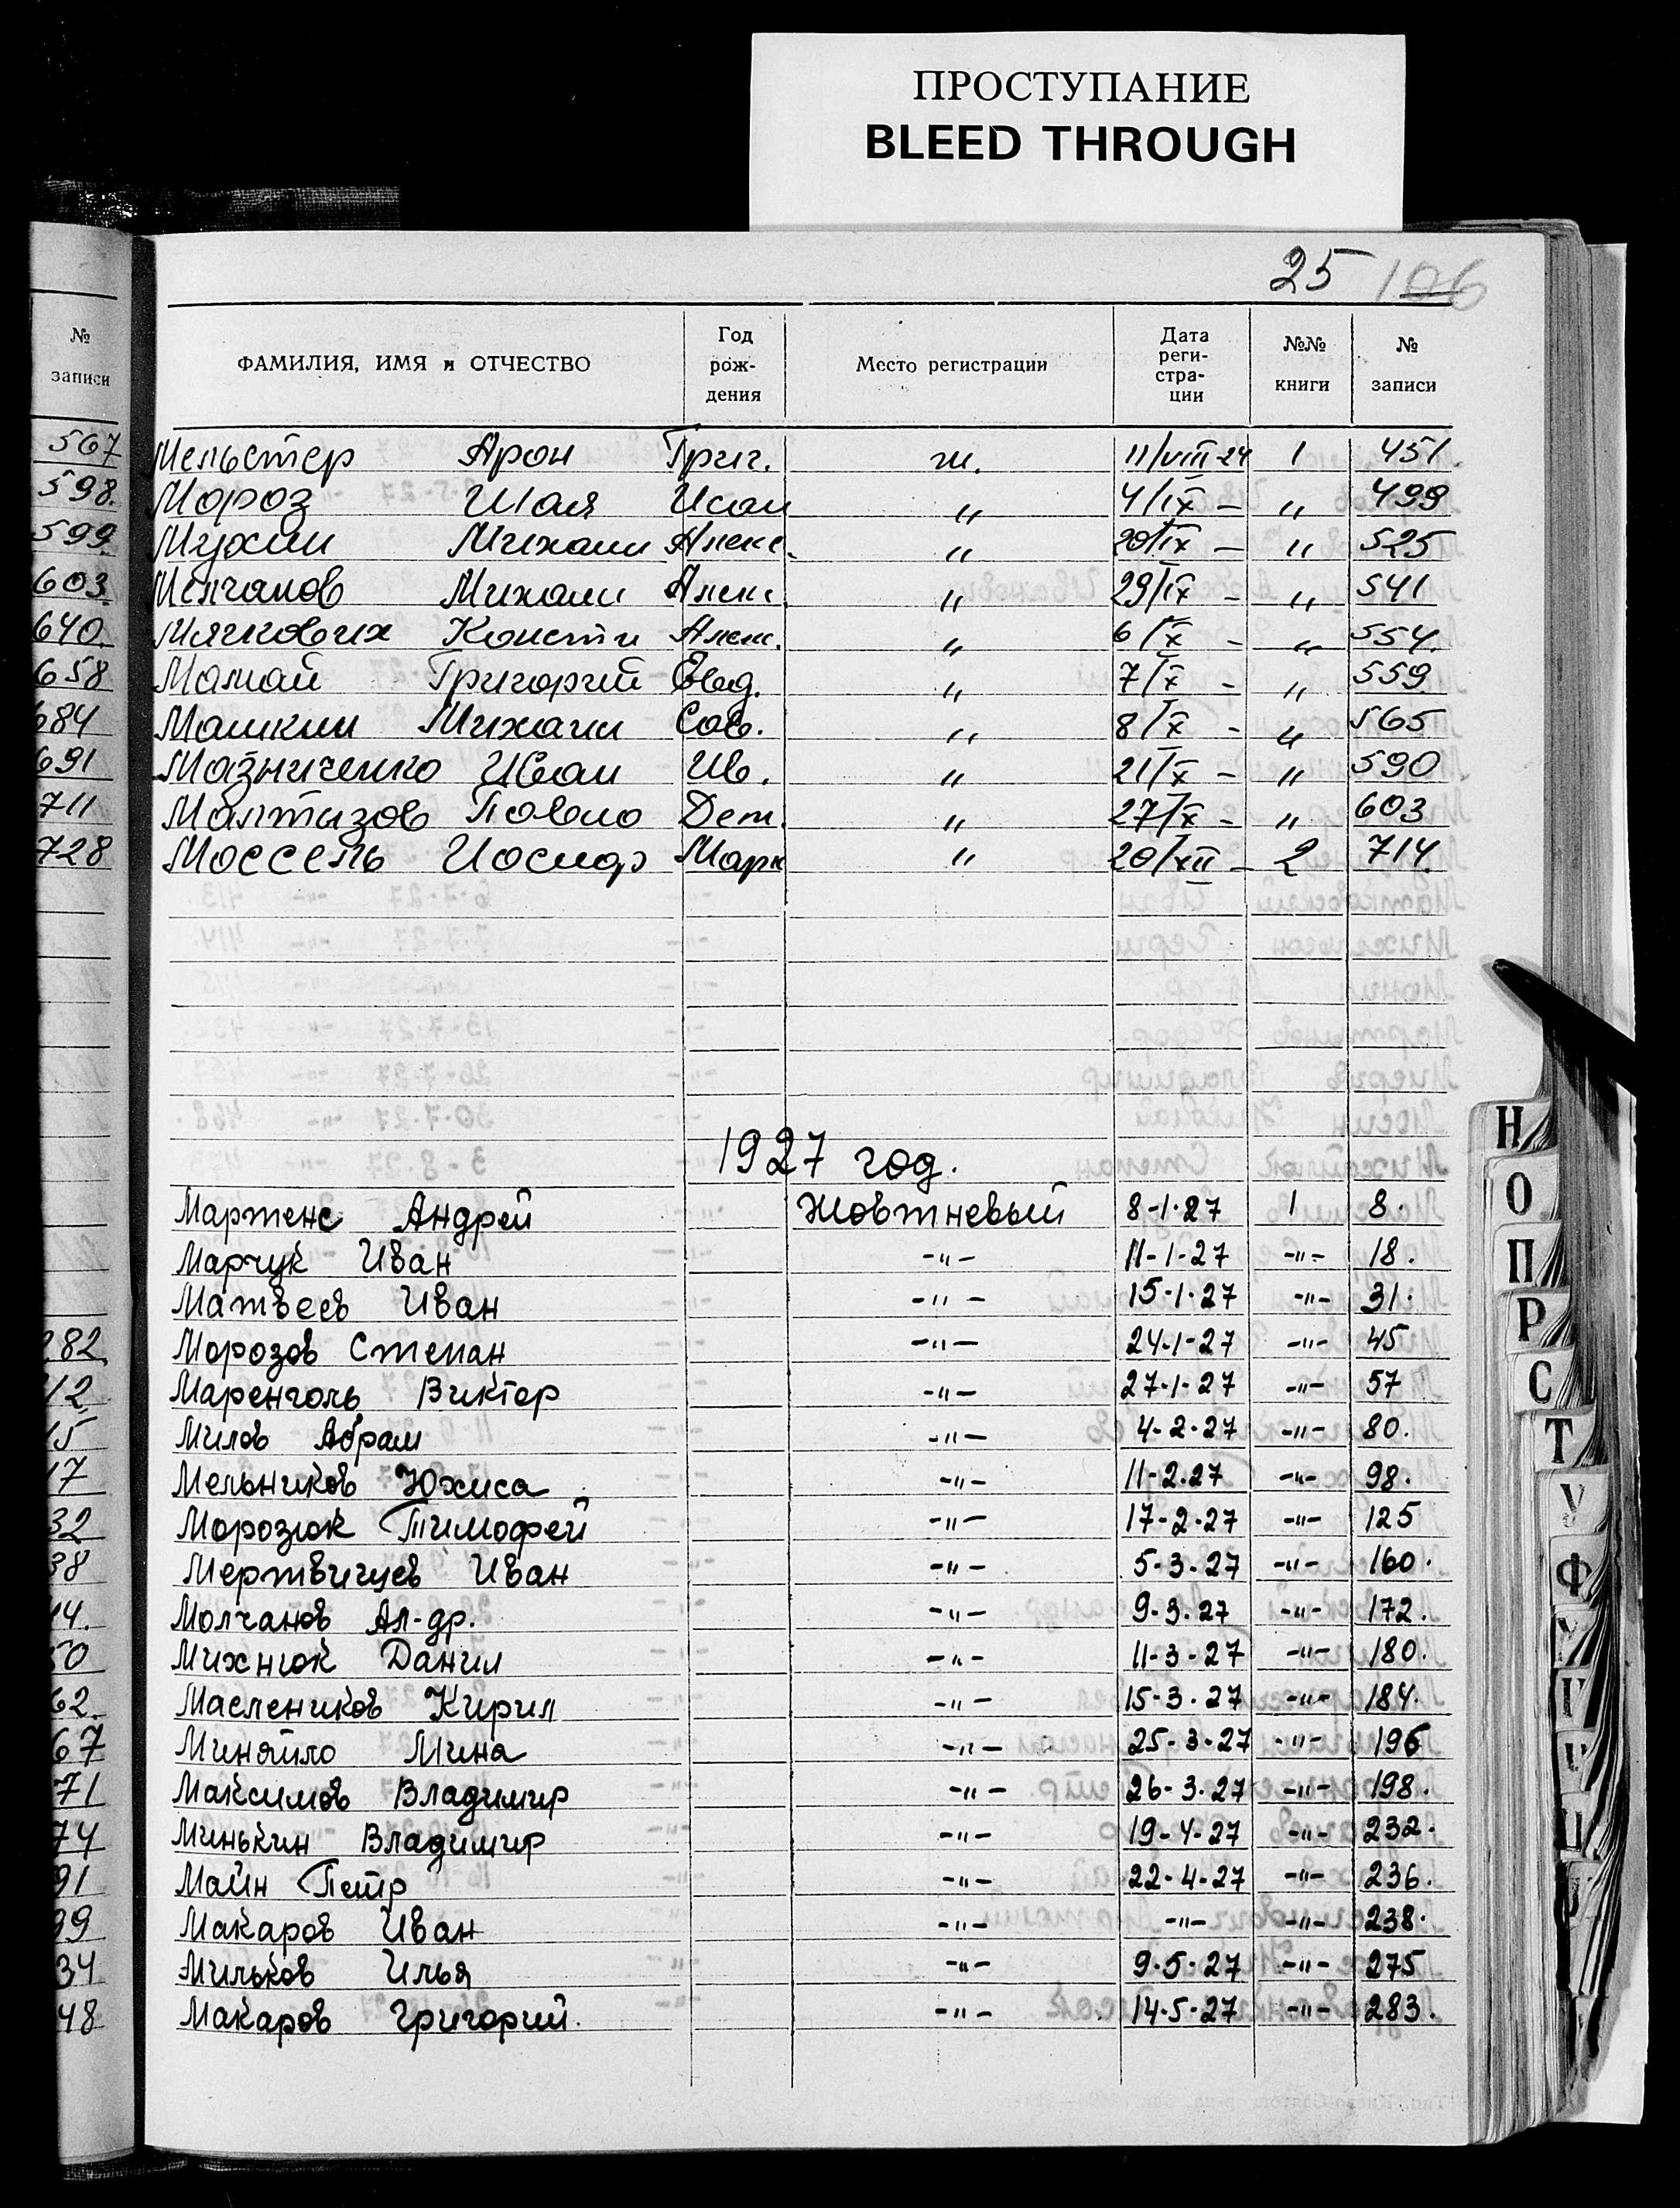 ПРОСТУПАНИЕ
BLEED THROUGH
25 106
№ записи
ФАМИЛИЯ, ИМЯ и ОТЧЕСТВО Год рождения Место регистрации Дата регистрации №№ книги № записи
567 Мельстер Арон Григ. ж. 11/VIII-24 1 451
598. Мороз Шая Исаи " 4/IX - " 499
599. Мухин Михаил Алекс. " 20/IX - " 525
603. Михаил Алекс. " 29/IX - " 541
640. Констти Алекс. " 6/X - " 554.
658 Мамай Григорий Евд. " 7/X - " 559
684 Машкин Михаил Сав. " 8/X - " 565
691 Мазниченко Иван Ив. " 21/X - " 590
711 Малтизов Павло Дем. " 27/X - " 603
728 Моссель Иосиф Марк " 20/XII - 2 714.
1927 год.
Мартенс Андрей Жовтневый 8-1-27 1 8.
Марчук Иван -"- 11-1-27 -"- 18.
Матвеев Иван -"- 15-1-27 -"- 31.
282. Морозов Степан -"- 24-1-27 -"- 45
12. Маренголь Виктор -"- 27-1-27 -"- 57
15 Милов Абрам -"- 4-2-27 -"- 80.
17 Мельников Юхиса -"- 11-2-27 -"- 98.
32 Морозюк Тимофей -"- 17-2-27 -"- 125
38 Мертвищев Иван -"- 5-3-27 -"- 160.
44. Молчанов Ал-др. -"- 9-3-27 -"- 172.
50 Михнюк Данил -"- 11-3-27 -"- 180.
62. Маслеников Кирил -"- 15-3-27 -"- 184.
67 Миняйло Мина -"- 25-3-27 -"- 196
71 Максимов Владимир -"- 26-3-27 -"- 198.
74 Минькин Владимир -"- 19-4-27 -"- 232.
91 Майн Петр -"- 22-4-27 -"- 236.
99 Макаров Иван -"- -"- -"- 238.
34 Мильков Илья -"- 9-5-27 -"- 275
48 Макаров Григорий. -"- 14-5-27 -"- 283.
Н
О
П
Р
С
Т
У
Ф